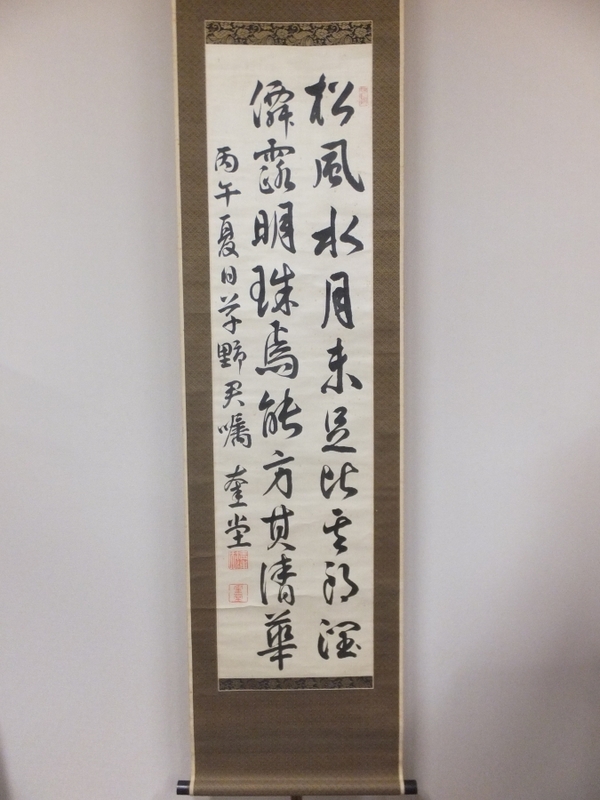 松風水月未足比其朗潤
僊露明珠焉能方其清華
丙午夏日草野君嘱 奎堂